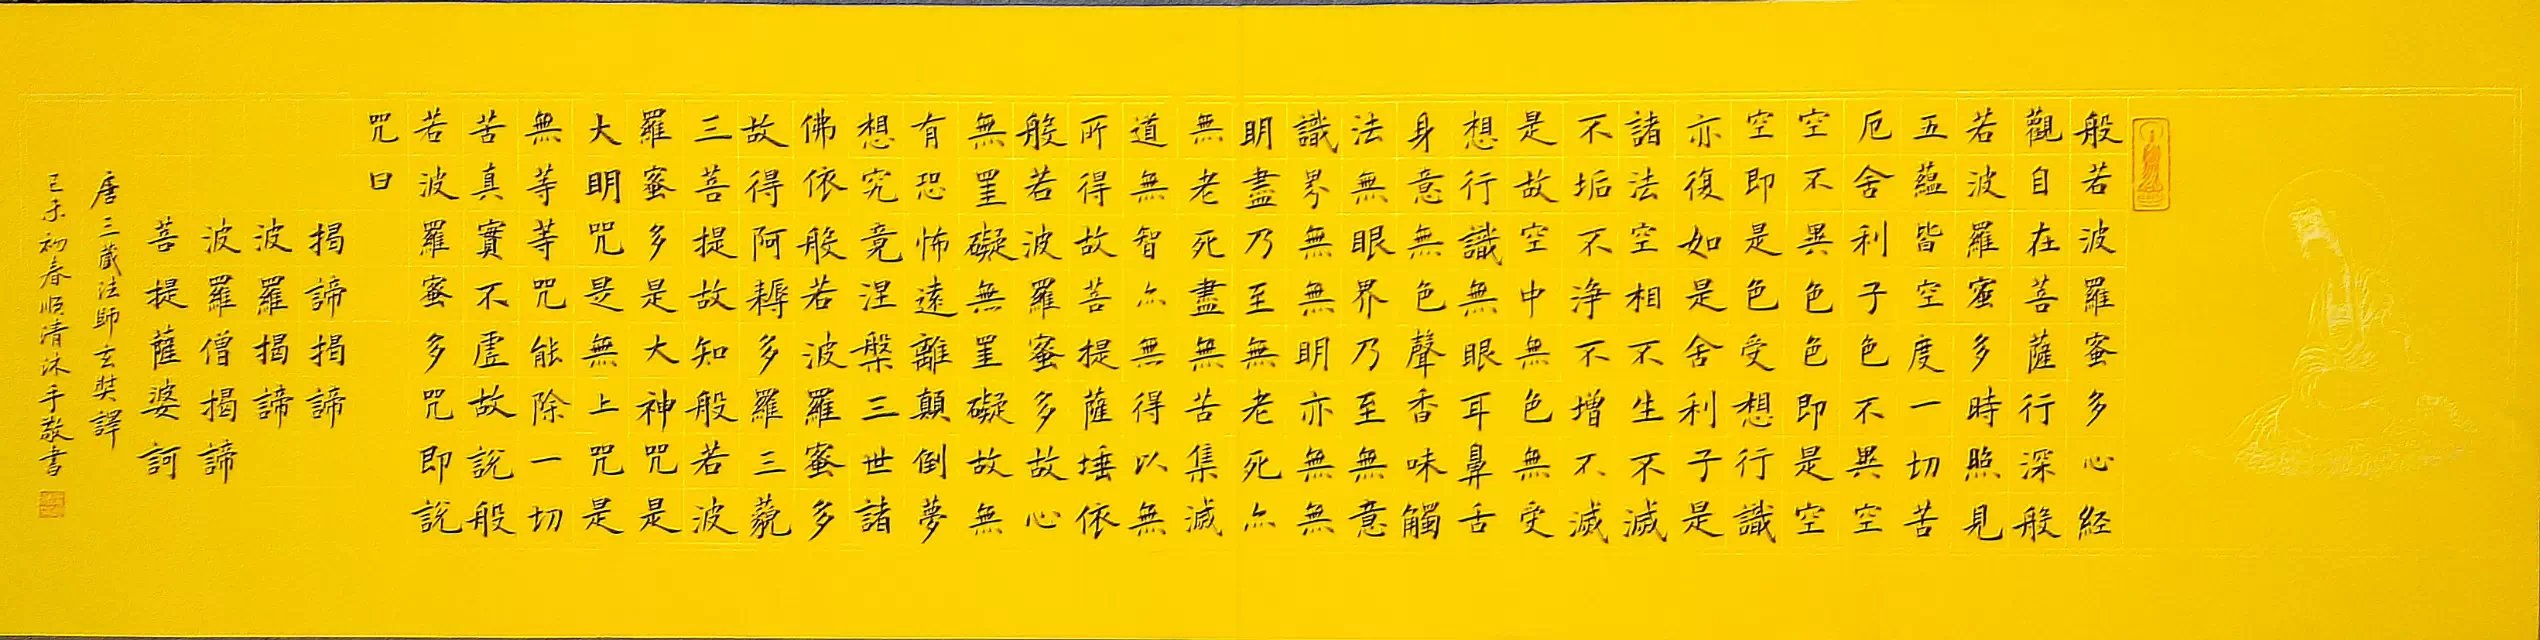 般若波羅蜜多心経
觀自在菩薩行深般
若波羅蜜多時照見
五蘊皆空度一切苦
厄舍利子色不異空
空不異色色即是空
空即是色受想行識
亦復如是舍利子是
諸法空相不生不滅
不垢不淨不增不滅
是故空中無色無受
想行識無眼耳鼻舌
身意無色聲香味觸
法無眼界乃至無意
識界無無明亦無無
明盡乃至無老死亦
無老死盡無苦集滅
道無智亦無得以無
所得故菩提薩埵依
般若波羅蜜多故心
無罣礙無罣礙故無
有恐怖遠離顛倒夢
想究竟涅槃三世諸
佛依般若波羅蜜多
故得阿耨多羅三藐
三菩提故知般若波
羅蜜多是大神咒是
大明咒是無上咒是
無等等咒能除一切
苦真實不虛故說般
若波羅蜜多咒即說
咒曰
揭諦揭諦
波羅揭諦
波羅僧揭諦
菩提薩婆訶
唐三藏法師玄奘譯
己未初春順清沐手敬書